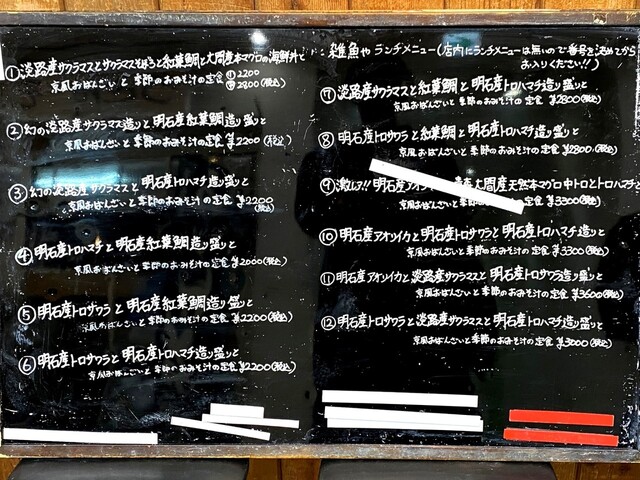 ①淡路産サクラマスとサクラマスそぼろと紅葉鯛と大間産本マグロの海鮮丼と
京風おばんざいと季節のおみそ汁の定食 ¥2200
¥2800(税込)
②幻の淡路産サクラマス造りと明石産紅葉鯛造り盛りと
京風おばんざいと季節のおみそ汁の定食 ¥2200(税込)
③幻の淡路産サクラマスと明石産トロハマチ造り盛りと
京風おばんざいと季節のおみそ汁の定食 ¥2200(税込)
④明石産トロハマチと明石産紅葉鯛造り盛りと
京風おばんざいと季節のおみそ汁の定食 ¥2000(税込)
⑤明石産トロサワラと明石産紅葉鯛造り盛りと
京風おばんざいと季節のおみそ汁の定食 ¥2200(税込)
⑥明石産トロサワラと明石産トロハマチ造り盛りと
京風おばんざいと季節のおみそ汁の定食 ¥2200(税込)
雑魚や ランチメニュー(店内にランチメニューは無いので番号を決めてから
お入りください!!)
⑦淡路産サクラマスと紅葉鯛と明石産トロハマチ造り盛りと
京風おばんざいと季節のおみそ汁の定食 ¥2800(税込)
⑧明石産トロサワラと紅葉鯛と明石産トロハマチ造り盛りと
京風おばんざいと季節のおみそ汁の定食 ¥2800(税込)
⑨激レア!!明石産アオリ 大間産天然本マグロ中トロとトロハマチと
京風おばんざい 季節のおみそ汁の定食 ¥3300(税込)
⑩明石産アオリイカと明石産トロサワラと明石産トロハマチ造りと
京風おばんざいと季節のおみそ汁の定食 ¥3300(税込)
⑪明石産アオリイカと淡路産サクラマスと明石産トロサワラ造り盛りと
京風おばんざいと季節のおみそ汁の定食 ¥3600(税込)
⑫明石産トロサワラと淡路産サクラマスと明石産トロハマチ造り盛りと
京風おばんざいと季節のおみそ汁の定食 ¥3000(税込)